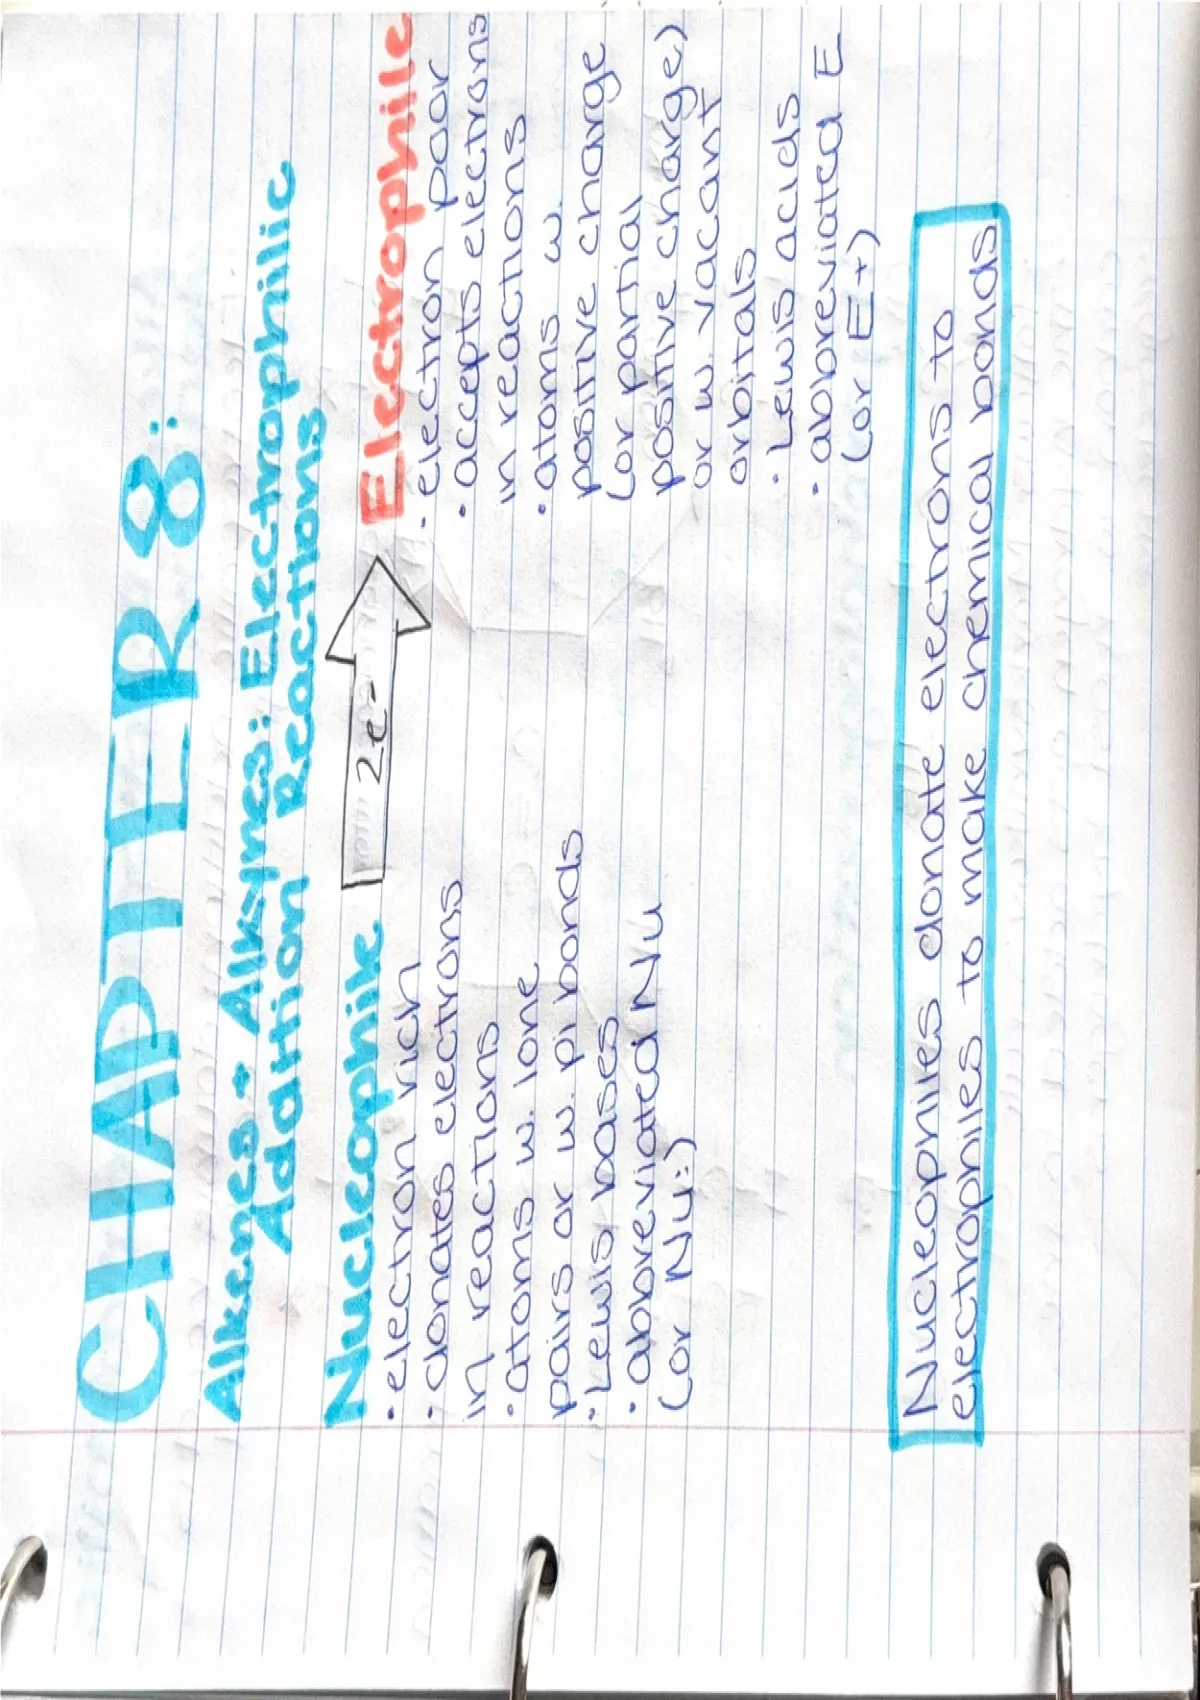 CHAPTER 8:
Alkenes + Alkynes: Electrophilic
Addition Reactions
Nucleophile
2e-
Electrophile
• electron rich
• donates electrons
in reactions
• atoms w. lone
pairs or w. pi bonds
• Lewis bases
• abbreviated Nu
(or Nu:)
• electron poor
• accepts electrons
in reactions
• atoms w.
positive charge
(or partial
positive charge)
or w. vacant
orbitals
• Lewis acids
• abbreviated E
(or E+)
Nucleophiles donate electrons to
electrophiles to make chemical bonds